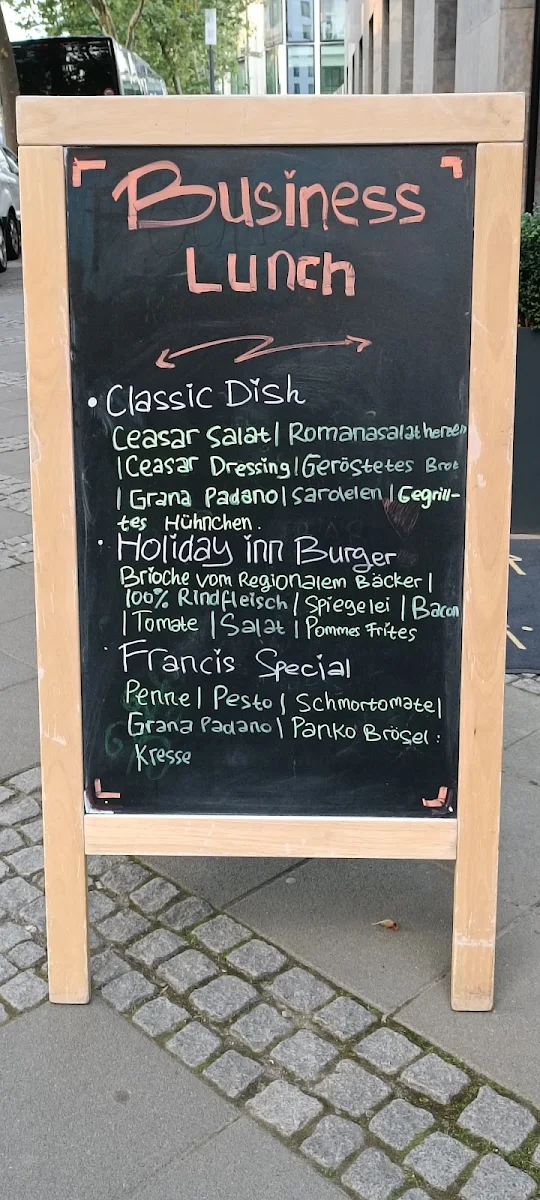 Business
Lunch
• Classic Dish
Ceasar Salat | Romanasalatherzen
| Ceasar Dressing | Geröstetes Brot
| Grana Padano | Sardelen | Gegrill-
tes Hühnchen.
• Holiday inn Burger
Brioche vom Regionalem Bäcker |
100% Rindfleisch | Spiegelei | Bacon
| Tomate | Salat | Pommes Frites
• Francis Special
Penne | Pesto | Schmortomate |
Grana Padano | Panko Brösel :
Kresse